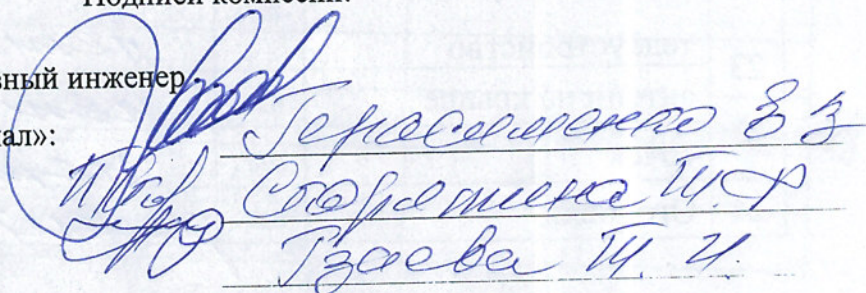 Подписи комиссии:
вный инженер
ал»:
Герасименко В З
Старошина Т. Ф
Гзаева Т. И.